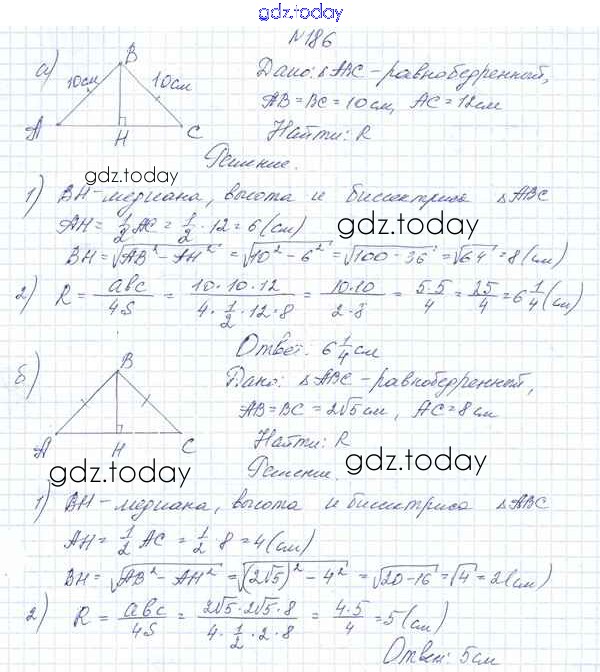 gdz.today
№186
а)
B
10см
10см
A
H
C
Дано: △ABC - равнобедренный,
AB = BC = 10 см, AC = 12 см
Найти: R
Решение.
gdz.today
1) BH - медиана, высота и биссектриса △ABC
AH = 1/2 AC = 1/2 · 12 = 6 (см)
gdz.today
BH = √(AB² - AH²) = √(10² - 6²) = √(100 - 36) = √64 = 8 (см)
2) R = abc/4S = (10 · 10 · 12)/(4 · 1/2 · 12 · 8) = (10 · 10)/(2 · 8) = (5 · 5)/4 = 25/4 = 6 1/4 (см)
Ответ: 6 1/4 см
б)
B
A
H
C
Дано: △ABC - равнобедренный,
AB = BC = 2√5 см, AC = 8 см
Найти: R
Решение.
gdz.today
gdz.today
1) BH - медиана, высота и биссектриса △ABC
AH = 1/2 AC = 1/2 · 8 = 4 (см)
BH = √(AB² - AH²) = √((2√5)² - 4²) = √(20 - 16) = √4 = 2 (см)
2) R = abc/4S = (2√5 · 2√5 · 8)/(4 · 1/2 · 2 · 8) = (4 · 5)/4 = 5 (см)
Ответ: 5 см